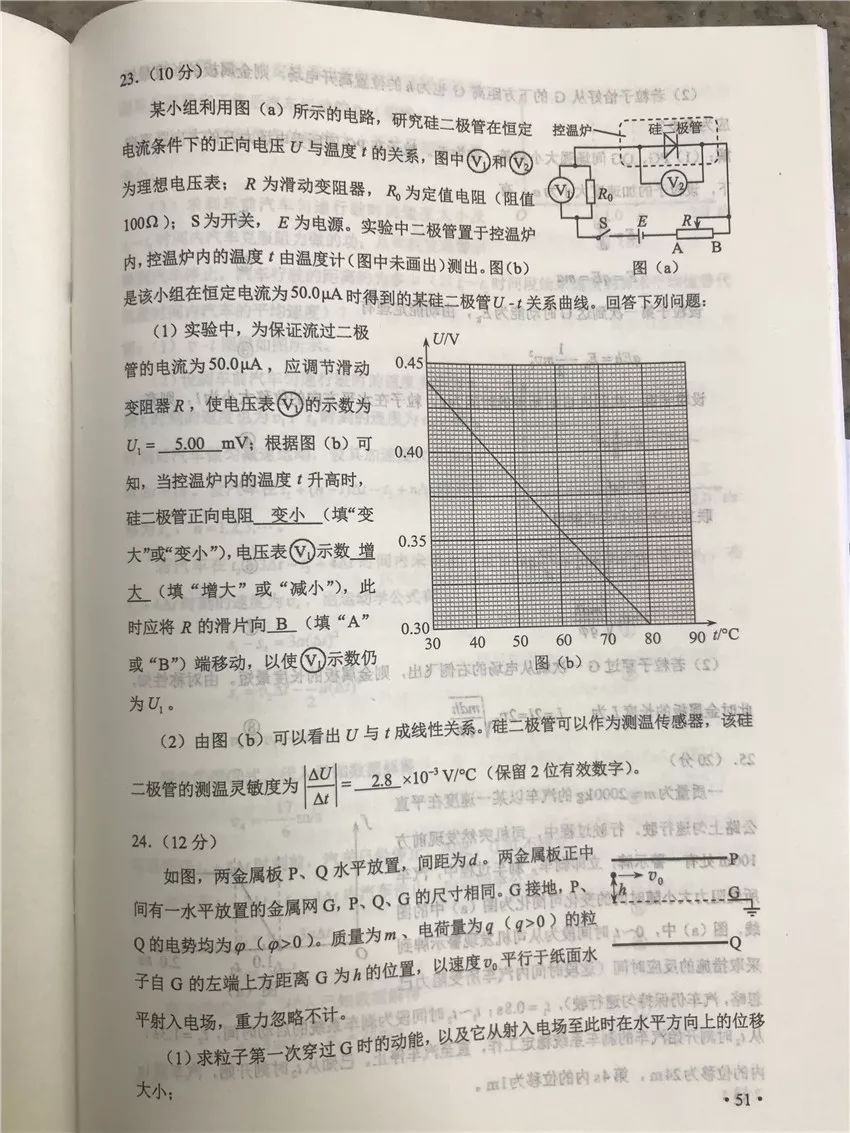 23. (10 分)
某小组利用图 (a) 所示的电路，研究硅二极管在恒定
电流条件下的正向电压 U 与温度 t 的关系，图中V₁和V₂
为理想电压表； R 为滑动变阻器， R₀ 为定值电阻 (阻值
100Ω)； S 为开关， E 为电源。实验中二极管置于控温炉
内，控温炉内的温度 t 由温度计(图中未画出)测出。图(b)
是该小组在恒定电流为50.0μA时得到的某硅二极管U-t关系曲线。回答下列问题：
控温炉
硅二极管
V₁
R₀
V₂
S
E
R
A
B
图 (a)
(1) 实验中，为保证流过二极
管的电流为50.0μA，应调节滑动
变阻器R，使电压表V₁的示数为
U₁= 5.00 mV；根据图 (b) 可
知，当控温炉内的温度 t 升高时，
硅二极管正向电阻 变小 (填“变
大”或“变小”)，电压表V₁示数 增
大 (填“增大” 或“减小”)，此
时应将 R 的滑片向 B (填 “A”
或 “B”) 端移动，以使V₁示数仍
为U₁。
U/V
0.45
0.40
0.35
0.30
30 40 50 60 70 80 90 t/°C
图 (b)
(2) 由图 (b) 可以看出 U 与 t 成线性关系。硅二极管可以作为测温传感器，该硅
二极管的测温灵敏度为 |ΔU/Δt| = 2.8 ×10⁻³ V/°C (保留 2 位有效数字)。
24. (12 分)
如图，两金属板 P、Q 水平放置，间距为d。两金属板正中
间有一水平放置的金属网 G，P、Q、G 的尺寸相同。G 接地，P、
Q 的电势均为φ (φ>0)。质量为m、电荷量为q (q>0) 的粒
子自 G 的左端上方距离 G 为h的位置，以速度v₀平行于纸面水
平射入电场，重力忽略不计。
P
v₀
h
G
Q
(1) 求粒子第一次穿过 G 时的动能，以及它从射入电场至此时在水平方向上的位移
大小；
·51·